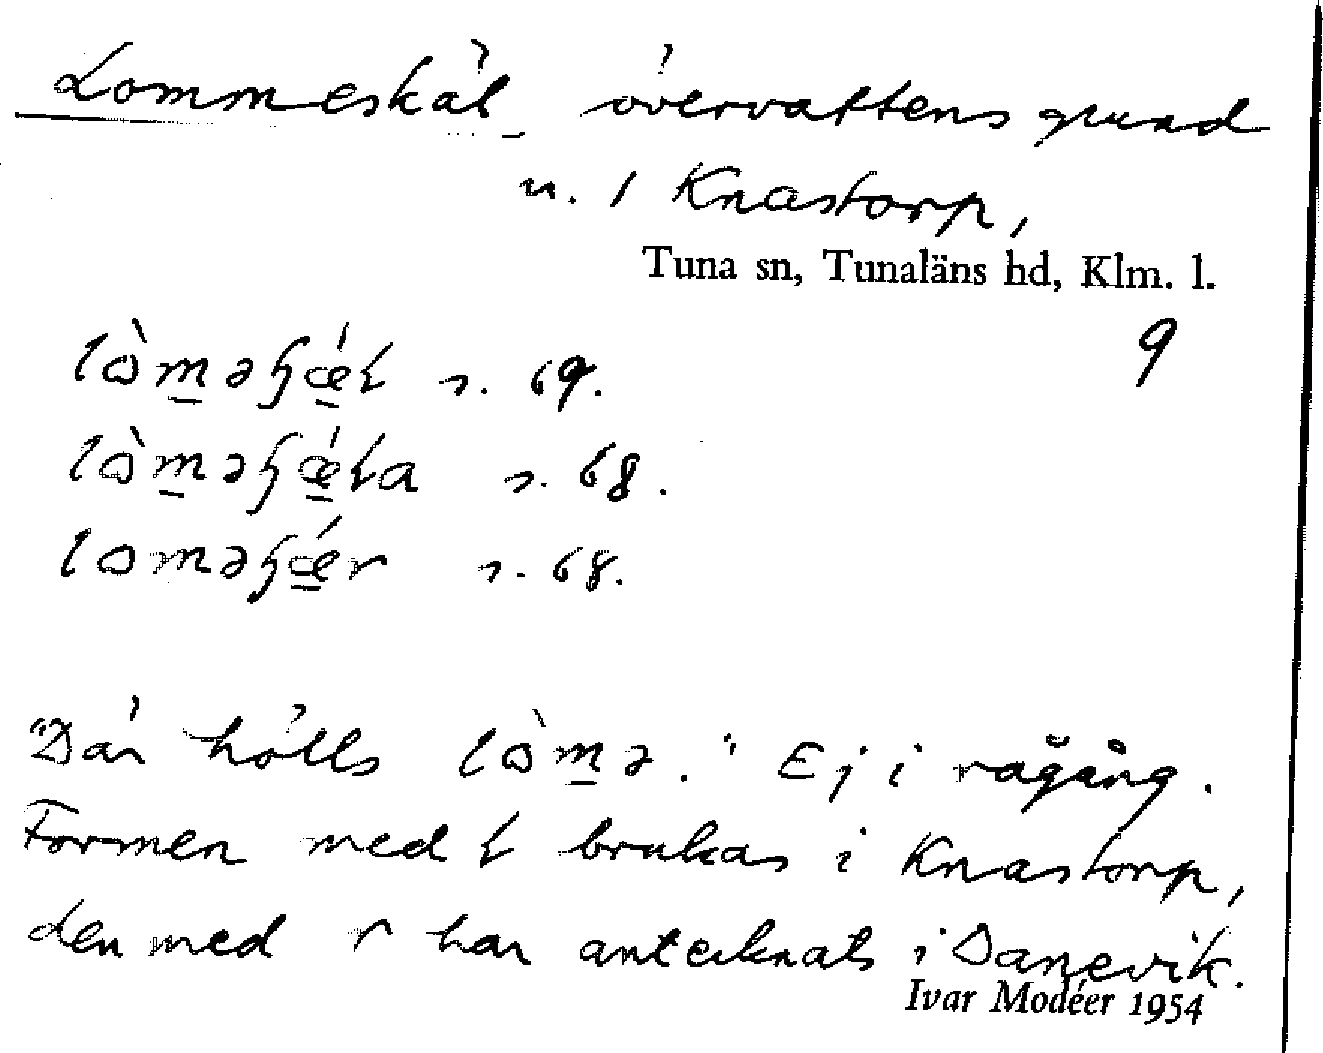 Lommeskäl, övervattensgrund
u. 1 Knastorp,
Tuna sn, Tunaläns hd, Klm. l.
9
s. 69.
s. 68.
s. 68.
"Där hölls lòm̲ə." Ej i rågång.
Formen med ɫ brukas i Knastorp,
den med r har antecknats i Danevik.
Ivar Modéer 1954